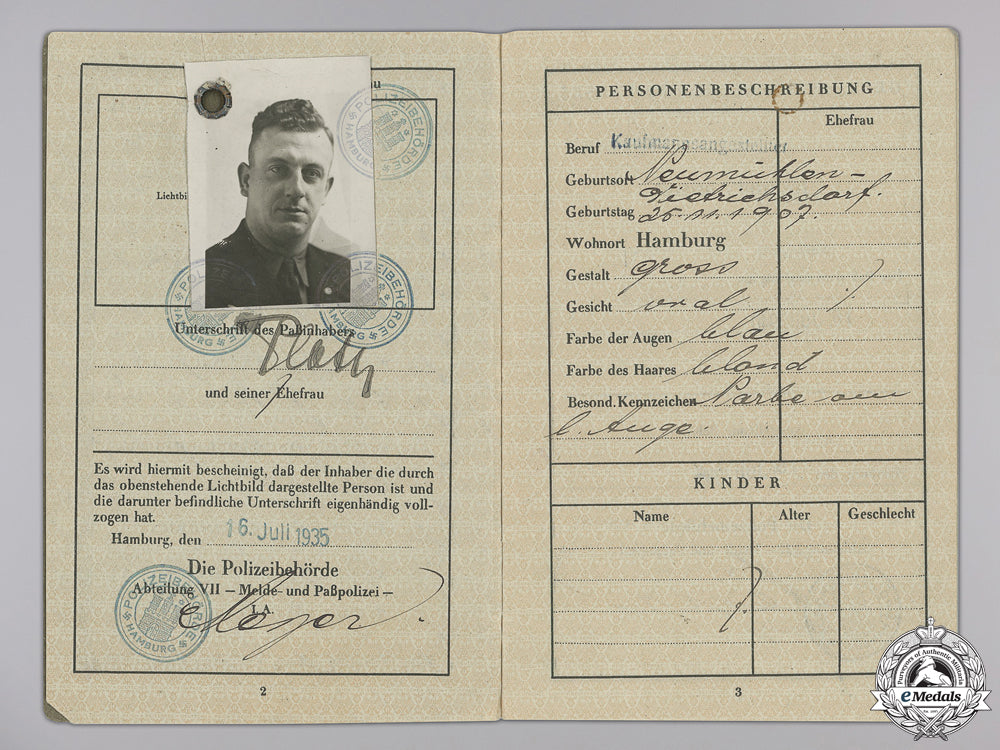 au
Lichtbi
POLIZEIBEHÖRDE HAMBURG
POLIZEIBEHÖRDE HAMBURG
POLIZEIBEHÖRDE HAMBURG
Unterschrift des Paßinhabers
und seiner Ehefrau
Es wird hiermit bescheinigt, daß der Inhaber die durch
das obenstehende Lichtbild dargestellte Person ist und
die darunter befindliche Unterschrift eigenhändig voll-
zogen hat.
Hamburg, den 16. Juli 1935
Die Polizeibehörde
Abteilung VII — Melde- und Paßpolizei —
I.A.
POLIZEIBEHÖRDE HAMBURG
2
PERSONENBESCHREIBUNG
Ehefrau
Beruf Kaufmannsangestellter
Geburtsort Neumühlen-
Dietrichsdorf.
Geburtstag 25.11.1907.
Wohnort Hamburg
Gestalt gross
Gesicht oval
Farbe der Augen blau
Farbe des Haares blond
Besond. Kennzeichen Narbe am
l. Auge.
KINDER
Name Alter Geschlecht
3
Purveyors of Authentic Militaria
eMedals